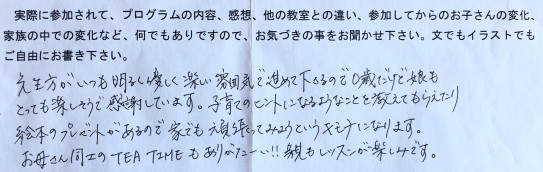 実際に参加されて、プログラムの内容、感想、他の教室との違い、参加してからのお子さんの変化、
家族の中での変化など、何でもありですので、お気づきの事をお聞かせ下さい。文でもイラストでも
ご自由にお書き下さい。
先生方がいつも明るく優しく楽しい雰囲気で進めて下さるので0歳だけど娘も
とっても楽しそうで感謝しています。子育てのヒントになるようなことを教えてもらえたり
絵本のプレゼントがあるので家でも頑張ってみようというキモチになります。
お母さん同士のTEA TIMEもありがたーい!!親もレッスンが楽しみです。